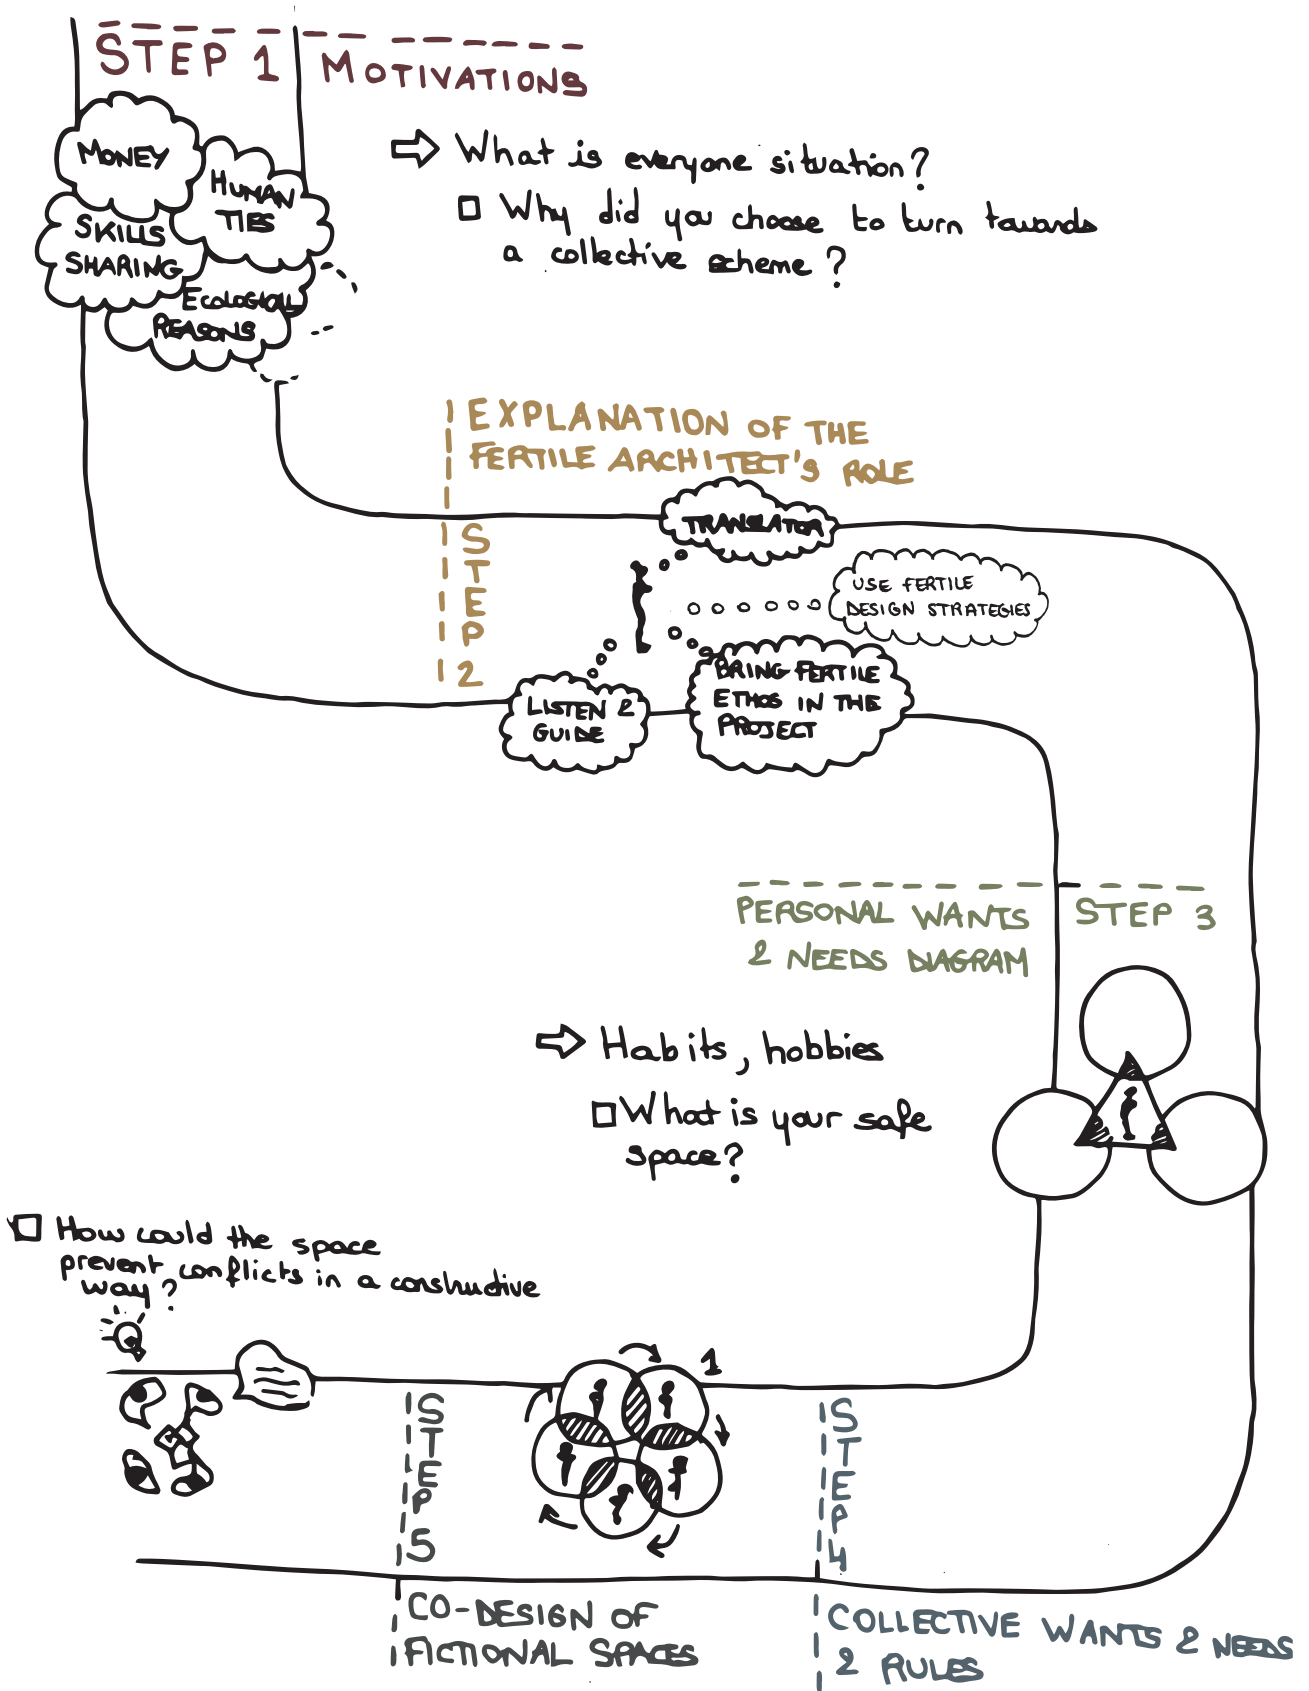 STEP 1 MOTIVATIONS
MONEY
HUMAN
TIES
SKILLS
SHARING
ECOLOGICAL
REASONS
What is everyone situation?
Why did you choose to turn towards
a collective scheme?
EXPLANATION OF THE
FERTILE ARCHITECT'S ROLE
STEP 2
TRANSLATOR
USE FERTILE
DESIGN STRATEGIES
BRING FERTILE
ETHOS IN THE
PROJECT
LISTEN &
GUIDE
PERSONAL WANTS
& NEEDS DIAGRAM
STEP 3
Habits, hobbies
What is your safe
space?
How could the space
prevent conflicts in a constructive
way?
1
STEP 4
COLLECTIVE WANTS & NEEDS
& RULES
STEP 5
CO-DESIGN OF
FICTIONAL SPACES